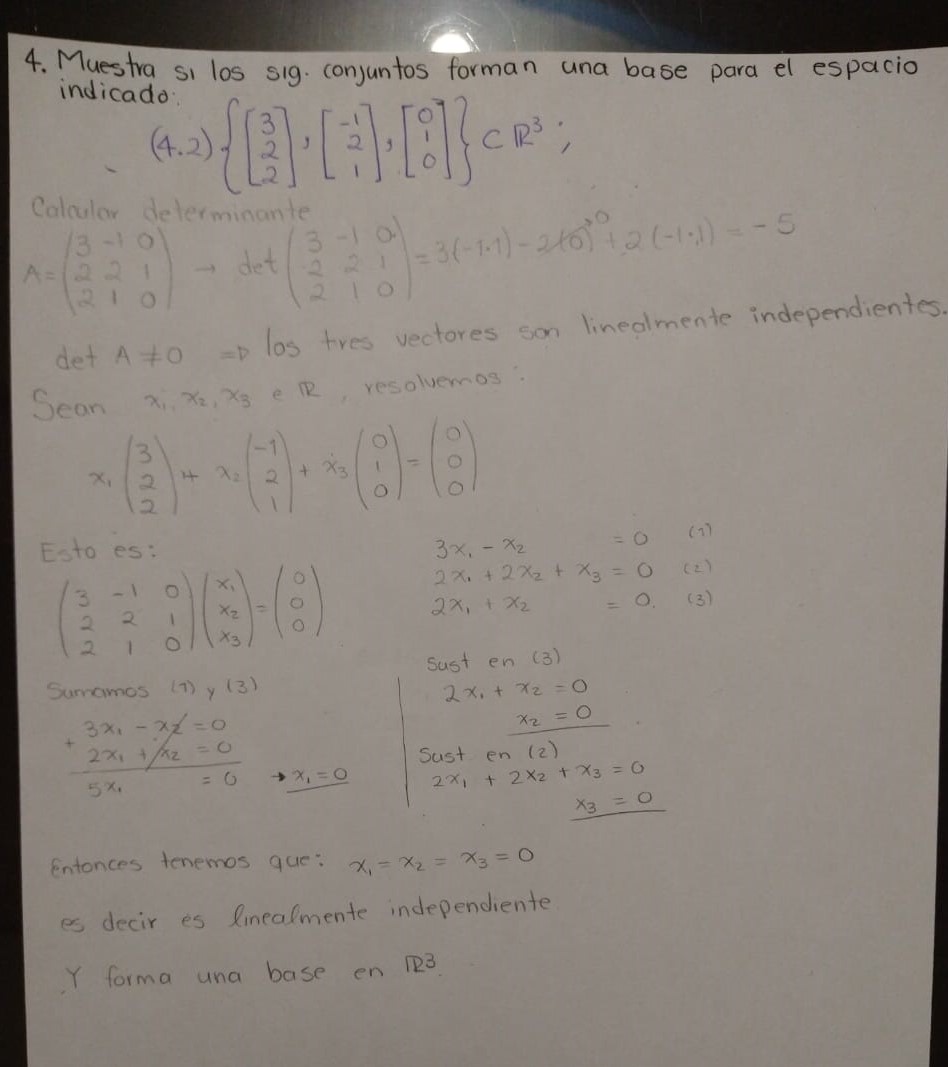 4. Muestra si los sig. conjuntos forman una base para el espacio
indicado:
(4.2) {[3 2 2], [-1 2 1], [0 1 0]} ⊂ ℝ³ ;
Calcular determinante
A = (3 -1 0 / 2 2 1 / 2 1 0) → det (3 -1 0 / 2 2 1 / 2 1 0) = 3(-1·1) - 2(0)→0 + 2(-1·1) = -5
det A ≠ 0 ⇒ los tres vectores son linealmente independientes.
Sean x₁, x₂, x₃ e ℝ, resolvemos:
x₁ (3 2 2) + x₂ (-1 2 1) + x₃ (0 1 0) = (0 0 0)
Esto es:
(3 -1 0 / 2 2 1 / 2 1 0) (x₁ x₂ x₃) = (0 0 0)
3x₁ - x₂ = 0 (1)
2x₁ + 2x₂ + x₃ = 0 (2)
2x₁ + x₂ = 0. (3)
Sumamos (1) y (3)
3x₁ - x₂ = 0
+ 2x₁ + x₂ = 0
5x₁ = 0 → x₁ = 0
Sust en (3)
2x₁ + x₂ = 0
x₂ = 0
Sust en (2)
2x₁ + 2x₂ + x₃ = 0
x₃ = 0
Entonces tenemos que: x₁ = x₂ = x₃ = 0
es decir es linealmente independiente.
Y forma una base en ℝ³.